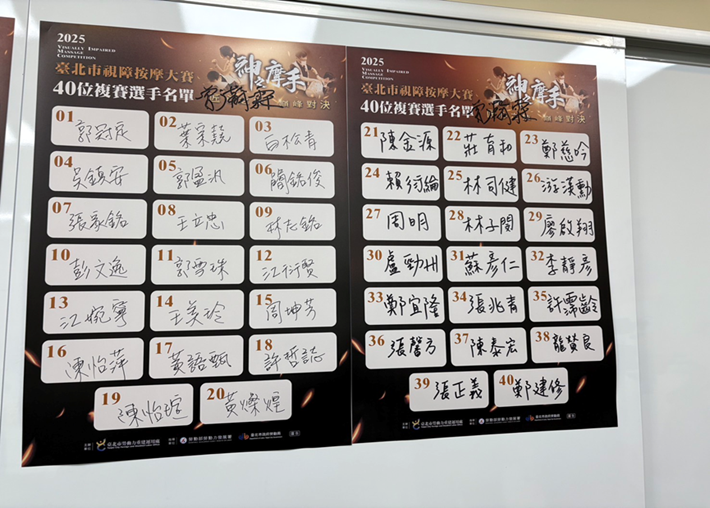 2025
VISUALLY IMPAIRED
MASSAGE
COMPETITION
臺北市視障按摩大賽
神摩手
巔峰對決
40位複賽選手名單
01 郭冠辰
02 葉宗蕘
03 白松青
04 吳鎮安
05 郭盈汎
06 簡銘俊
07 張家銘
08 王立忠
09 林志銘
10 彭文逸
11 郭雪珠
12 江衍賢
13 江婉寧
14 王美玲
15 周坤芳
16 陳怡萍
17 黃語甄
18 許哲誌
19 陳怡瑄
20 黃燦煌
2025
VISUALLY IMPAIRED
MASSAGE
COMPETITION
臺北市視障按摩大賽
神摩手
巔峰對決
40位複賽選手名單
21 陳金源
22 莊育和
23 鄭慈吟
24 賴衍綸
25 林司健
26 游漢勳
27 周明
28 林子閎
29 廖啟翔
30 盧勁州
31 蘇彥仁
32 李靜彥
33 鄭宜隆
34 張兆青
35 許霈齡
36 張馨方
37 陳泰宏
38 龍榮良
39 張正義
40 鄭建修